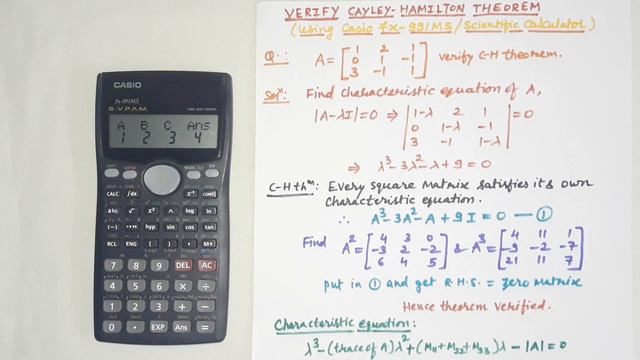 VERIFY CAYLEY-HAMILTON THEOREM
(Using Casio fx-991MS/Scientific Calculator)
Q.: A = [1 2 1
0 1 -1
3 -1 1] verify C-H theorem.
Solⁿ: Find characteristic equation of λ,
|A-λI|=0 ⇒ |1-λ 2 1
0 1-λ -1
3 -1 1-λ| = 0
⇒ λ³-3λ²-λ+9=0
C-H thᵐ: Every square matrix satisfies its own
characteristic equation.
∴ A³-3A²-A+9I=0 — ①
Find A² = [4 3 0
-3 2 -2
6 4 5] & A³ = [4 11 1
-9 -2 -7
21 11 7]
put in ① and get R.H.S. = zero matrix
Hence theorem verified.
Characteristic equation:
λ³-(trace of A)λ²+(M₁₁+M₂₂+M₃₃)λ-|A|=0
CASIO
fx-991MS
S-V.P.A.M.
TWO WAY POWER
A B C Ans
1 2 3 4
SHIFT ALPHA MODE ON
CALC ∫dx x⁻¹ CONST
a b/c √ x² ^ log ln
(-) °'" hyp sin cos tan
RCL ENG ( ) , M+
7 8 9 DEL AC
4 5 6 × ÷
1 2 3 + −
0 . EXP Ans =